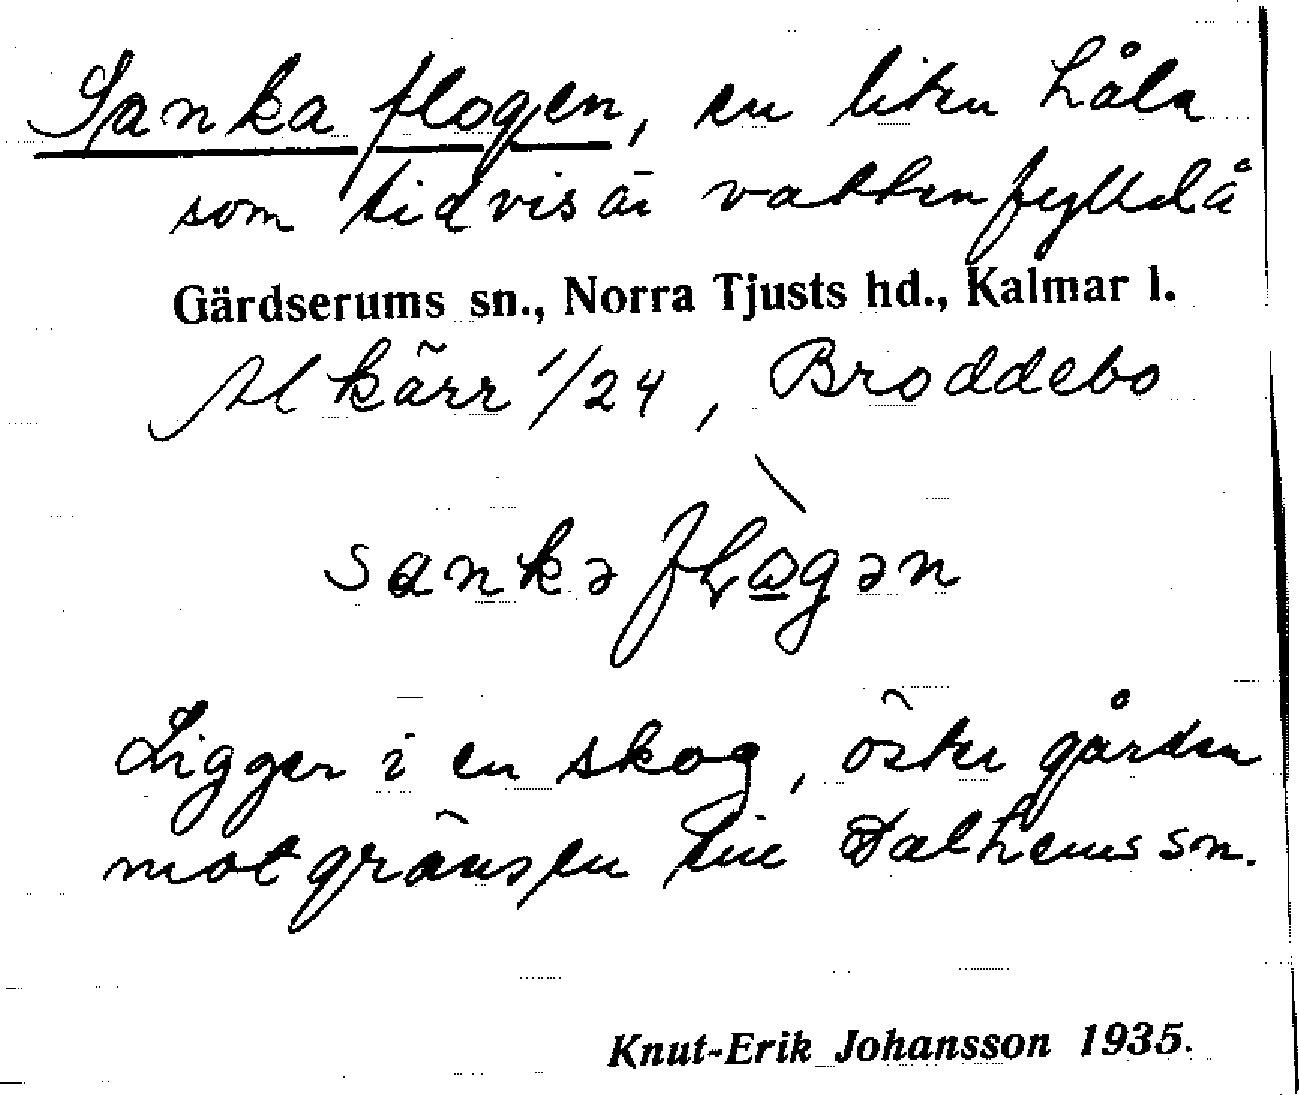 Sanka flogen, en liten håla
som tidvis är vattenfylld å
Gärdserums sn., Norra Tjusts hd., Kalmar l.
Alkärr 1/24, Broddebo
sankə flo̲gən
Ligger i en skog, öster gården
mot gränsen till Dalhems sn.
Knut-Erik Johansson 1935.